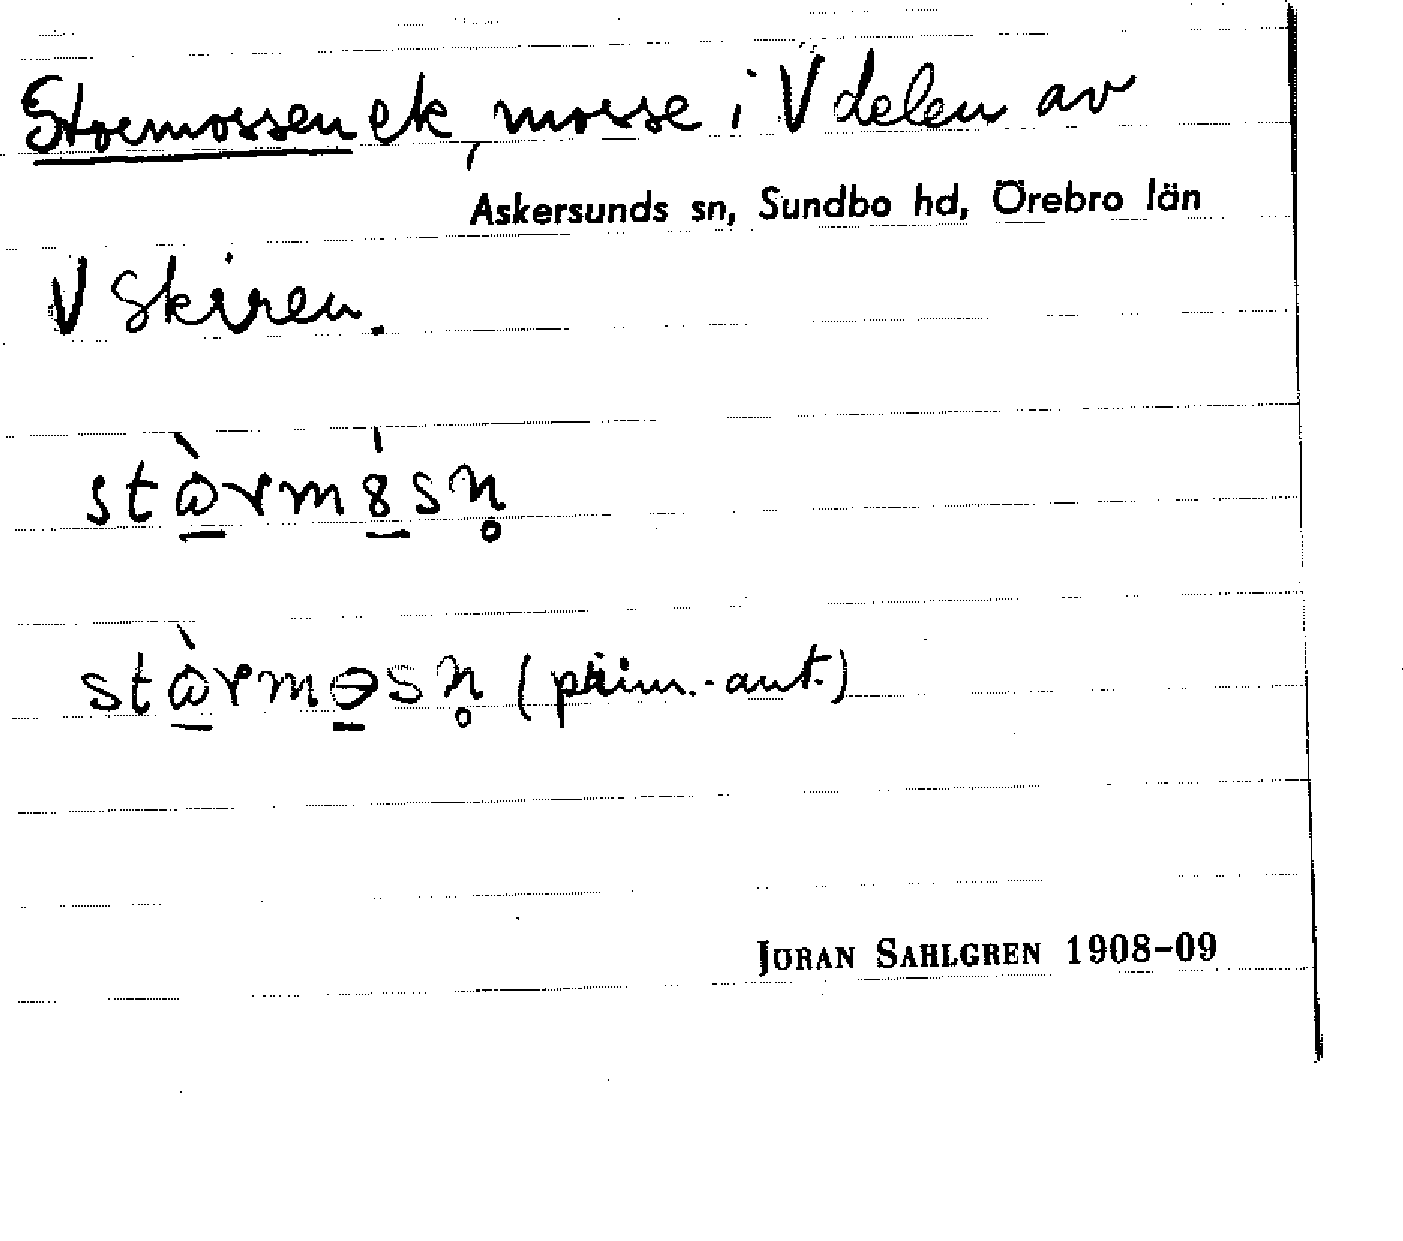 Stormossen ek, mosse i V delen av
Askersunds sn, Sundbo hd, Örebro län
V Skiren.
(prim.-ant.)
JÖRAN SAHLGREN 1908-09